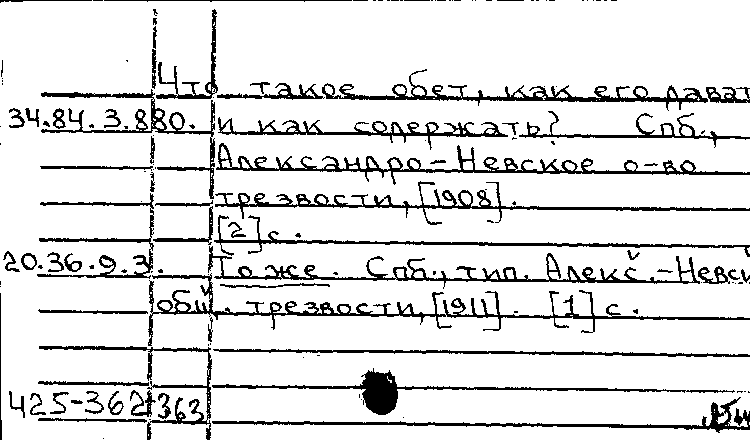 Что такое обет, как его дават
34.84.3.880. и как содержать? Спб.,
Александро-Невское о-во
трезвости, [1908].
[2] с.
20.36.9.3. То же. Спб., тип. Алекс.-Невск
общ. трезвости, [1911]. [1] с.
425-362 363